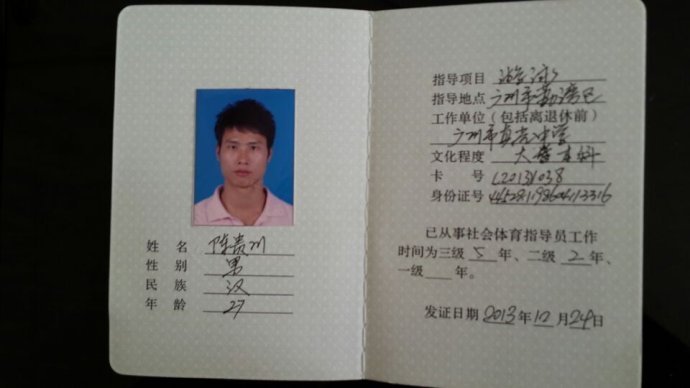 姓 名 陈贵川
性 别 男
民 族 汉
年 龄 27
指导项目 游泳
指导地点 广州市荔湾区
工作单位（包括离退休前）
广州市真光中学
文化程度 大学本科
卡 号
身份证号
已从事社会体育指导员工作
时间为三级 5 年、二级 2 年、
一级 年。
发证日期 2013年12月24日